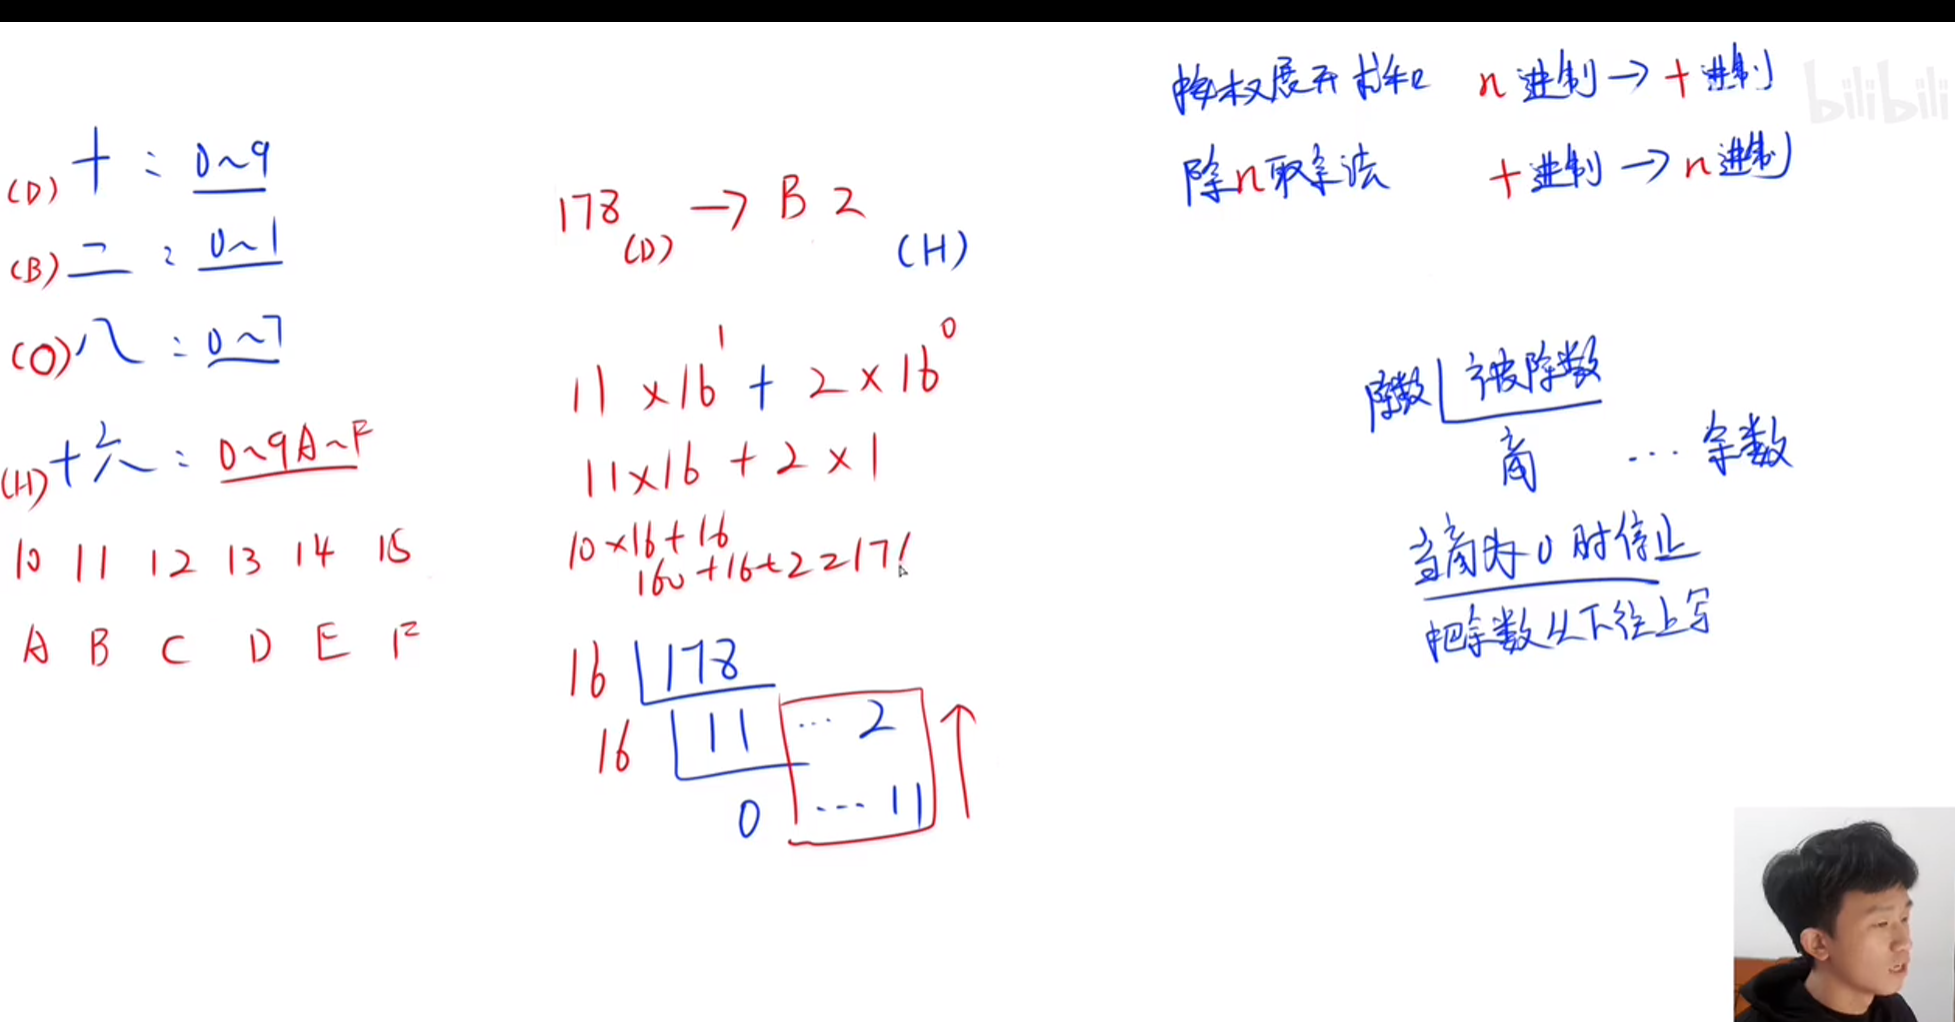 (D) 十 : 0~9
(B) 二 : 0~1
(O) 八 : 0~7
(H) 十六 : 0~9A~F
10 11 12 13 14 15
A B C D E F
178(D) → B2 (H)
11×16¹ + 2×16⁰
11×16 + 2×1
10×16+16
160+16+2=17
16 178
16 11 ... 2
0 ... 11
按权展开求和 n进制→十进制
除n取余法 十进制→n进制
除数 被除数
商 ... 余数
当商为0时停止
把余数从下往上写
bilibili